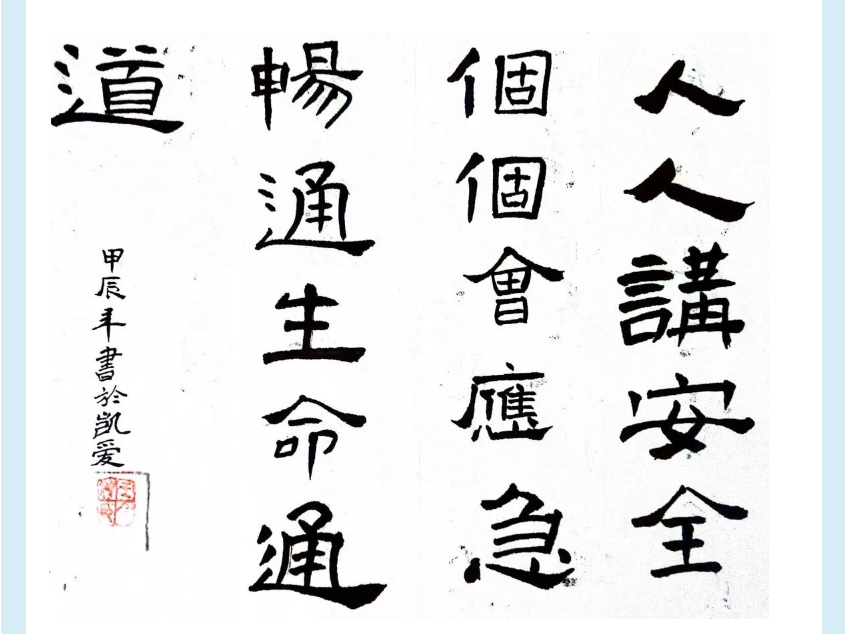 人人講安全
個個會應急
暢通生命通
道
甲辰年書於凯爱